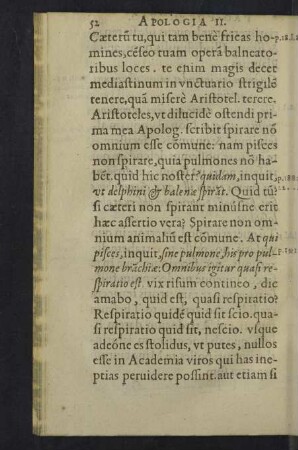 52 APOLOGIA II.
Cæterũ tu, qui tam benè fricas ho-
mines, cẽseo tuam operã balneato-
ribus loces. te enim magis decet
mediastinum in vnctuario strigilẽ
tenere, quã miserè Aristotel. terere.
Aristoteles, vt dilucidè ostendi prima
mea Apolog. scribit spirare nõ
omnium esse cõmune: nam pisces
non spirare, quia pulmones nõ ha-
bẽt. quid hic noster? quidam, inquit,
vt delphini & balenæ spirãt. Quid tũ?
si cæteri non spirant minúsne erit
hæc assertio vera? Spirare non om-
nium animaliũ est cõmune. At qui
pisces, inquit, sine pulmone, his pro pul-
mone brãchiæ: Omnibus igitur quasi re-
spiratio est. vix risum contineo, dic
amabo, quid est, quasi respiratio?
Respiratio quidẽ quid sit scio. qua-
si respiratio quid sit, nescio. vsque
adeóne es stolidus, vt putes, nullos
esse in Academia viros qui has ine-
ptias peruidere possint. aut etiam si